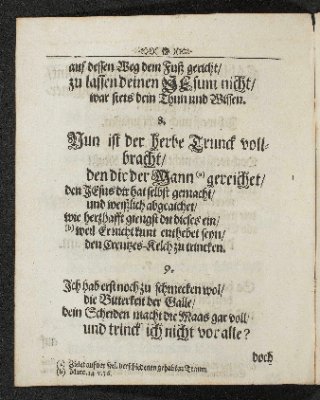 auf dessen Weg dem Fuß gericht/
zu lassen deinen JEsum nicht/
war stets dein Thun und Wissen.
8.
Nun ist der herbe Trunck voll-
bracht/
den dir der Mann (a) gereichet/
den JEsus dir hat selbst gemacht/
und weißlich abgeaichet/
wie herzhafft giengst du dieses ein/
(b) weil Er nicht kunt enthebet seyn/
den Creutzes-Kelch zu trincken.
9.
Ich hab erst noch zu schmecken wol/
die Bitterkeit der Galle/
dein Scheiden macht die Maas gar voll/
und trinck ich nicht vor alle?
doch
(a) Zielet auf der verschiedenen gehabten Traum.
(b) Marc. 14. v. 36.